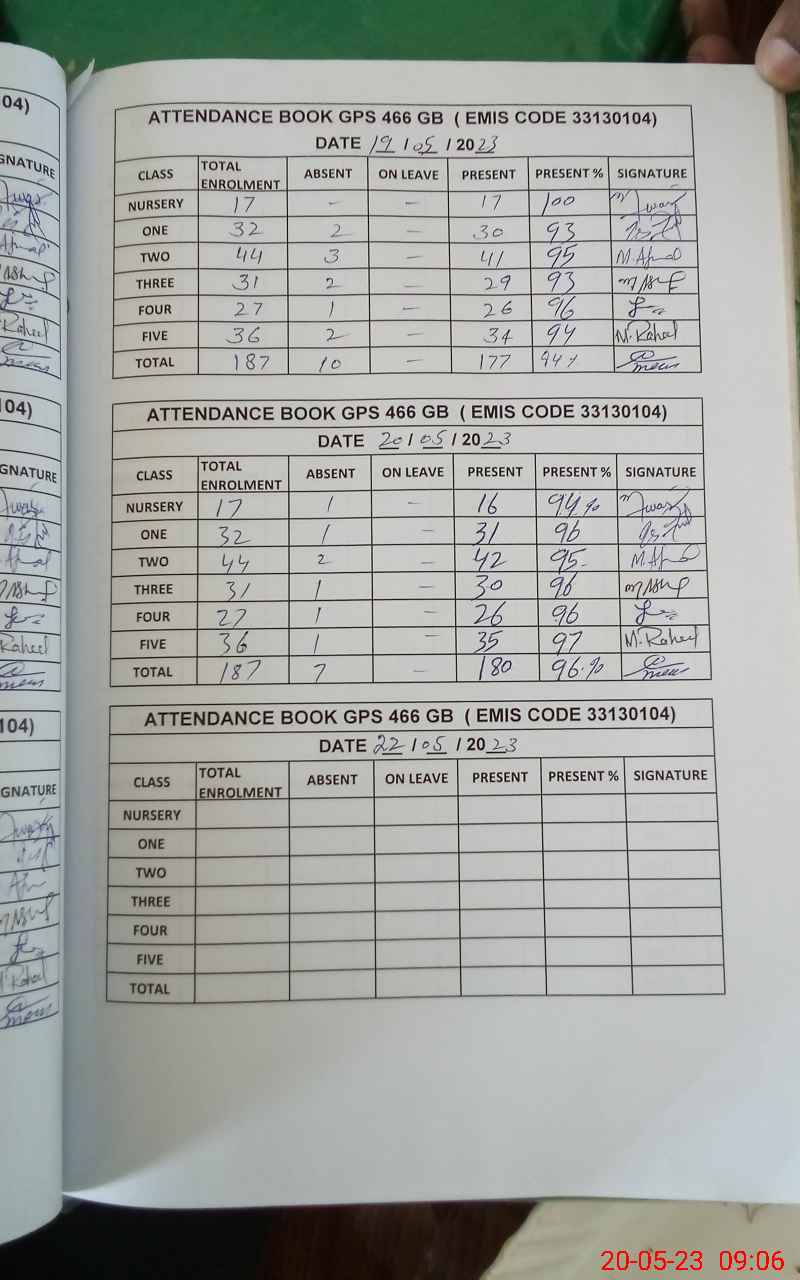 04)
GNATURE
M. Raheel
04)
GNATURE
Raheel
104)
GNATURE
ATTENDANCE BOOK GPS 466 GB ( EMIS CODE 33130104)
DATE 19 / 05 / 2023
CLASS TOTAL ENROLMENT ABSENT ON LEAVE PRESENT PRESENT % SIGNATURE
NURSERY 17 - - 17 100
ONE 32 2 - 30 93
TWO 44 3 - 41 95 M.Afzal
THREE 31 2 - 29 93
FOUR 27 1 - 26 96
FIVE 36 2 - 34 94 M.Raheel
TOTAL 187 10 - 177 94%
ATTENDANCE BOOK GPS 466 GB ( EMIS CODE 33130104)
DATE 20 / 05 / 2023
CLASS TOTAL ENROLMENT ABSENT ON LEAVE PRESENT PRESENT % SIGNATURE
NURSERY 17 1 - 16 94%
ONE 32 1 - 31 96
TWO 44 2 - 42 95 M.Afzal
THREE 31 1 - 30 96
FOUR 27 1 - 26 96
FIVE 36 1 - 35 97 M.Raheel
TOTAL 187 7 - 180 96%
ATTENDANCE BOOK GPS 466 GB ( EMIS CODE 33130104)
DATE 22 / 05 / 2023
CLASS TOTAL ENROLMENT ABSENT ON LEAVE PRESENT PRESENT % SIGNATURE
NURSERY
ONE
TWO
THREE
FOUR
FIVE
TOTAL
20-05-23 09:06